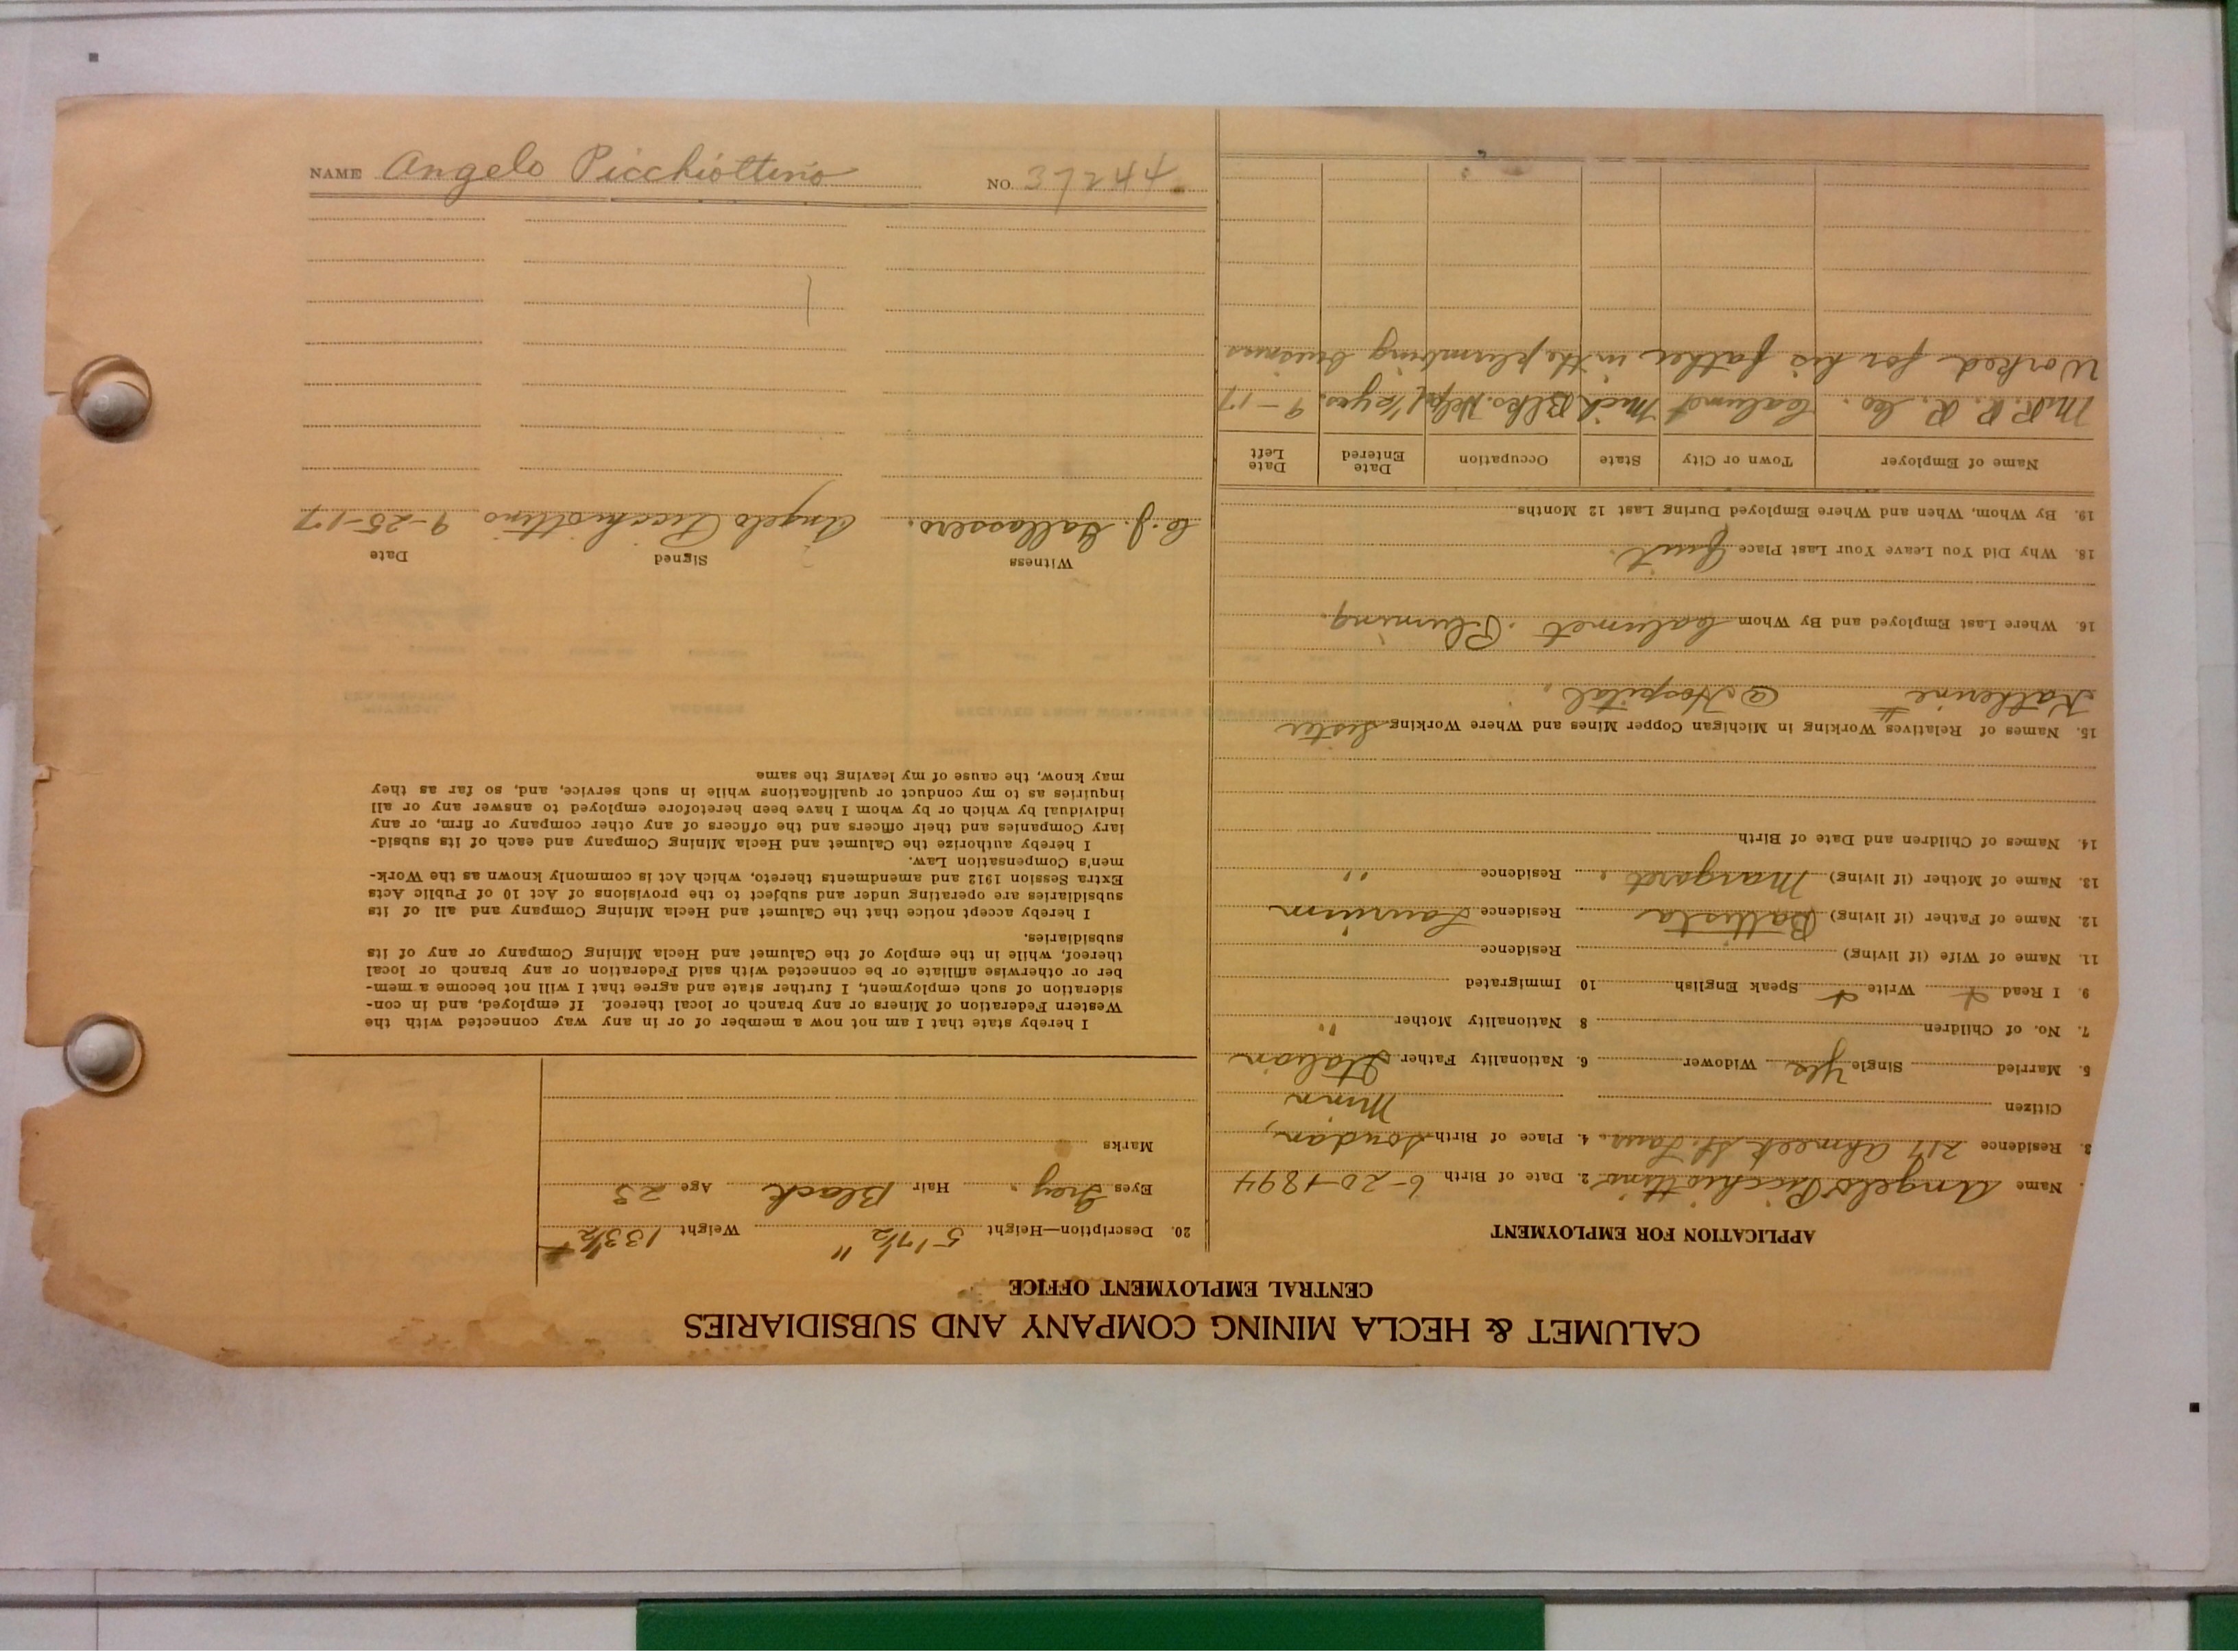 CALUMET & HECLA MINING COMPANY AND SUBSIDIARIES
CENTRAL EMPLOYMENT OFFICE
APPLICATION FOR EMPLOYMENT
Name Angelo Picchiottino 2. Date of Birth 6-20-1894
3. Residence 217 Ahmeek St. Laur. 4. Place of Birth Soudan,
Citizen Minn
5. Married Single Yes Widower 6. Nationality Father Italian
7. No. of Children 8 Nationality Mother "
9. I Read Write Speak English 10 Immigrated
11. Name of Wife (if living) Residence
12. Name of Father (if living) Battista Residence Laurium
13. Name of Mother (if living) Margaret Residence "
14. Names of Children and Date of Birth
15. Names of Relatives Working in Michigan Copper Mines and Where Working Sister
Katherine @ Hospital.
16. Where Last Employed and By Whom Calumet. Pluming.
18. Why Did You Leave Your Last Place Quit.
19. By Whom, When and Where Employed During Last 12 Months
Name of Employer Town or City State Occupation Date Entered Date Left
M.R.R.R. Co. Calumet Mich Blks. Helper 1½ yrs. 9-17
Worked for his father in the plumbing business
20. Description—Height 5' 7½" Weight 133½
Eyes Grey. Hair Black Age 23
Marks
I hereby state that I am not now a member of or in any way connected with the
Western Federation of Miners or any branch or local thereof. If employed, and in con-
sideration of such employment, I further state and agree that I will not become a mem-
ber or otherwise affiliate or be connected with said Federation or any branch or local
thereof, while in the employ of the Calumet and Hecla Mining Company or any of its
subsidiaries.
I hereby accept notice that the Calumet and Hecla Mining Company and all of its
subsidiaries are operating under and subject to the provisions of Act 10 of Public Acts
Extra Session 1912 and amendments thereto, which Act is commonly known as the Work-
men's Compensation Law.
I hereby authorize the Calumet and Hecla Mining Company and each of its subsid-
iary Companies and their officers and the officers of any other company or firm, or any
individual by which or by whom I have been heretofore employed to answer any or all
inquiries as to my conduct or qualifications while in such service, and, so far as they
may know, the cause of my leaving the same
Witness Signed Date
C.J. Gallassero. Angelo Picchiottino. 9-25-17
NAME Angelo Picchiottino NO. 37244